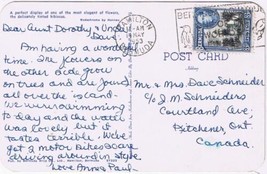 A perfect display of one of the most elegant of flowers,
the delicately tinted hibiscus.
HAMILTON
AM
MAY
BERMUDA
POST CARD
Dear Aunt Dorothy & Uncle
Dave,
Am having a wonderful
time. The flowers on
the other side grow
on trees and are found
all over the island.
We were swimming
to-day and the water
was lovely but it
tastes terrible. We've
got 2 motor bikes & are
driving around in style
Love Anne & Paul
Mr & Mrs Dave Schneider
c/o J. M. Schneiders
Courtland Ave
Kitchener Ont
Canada